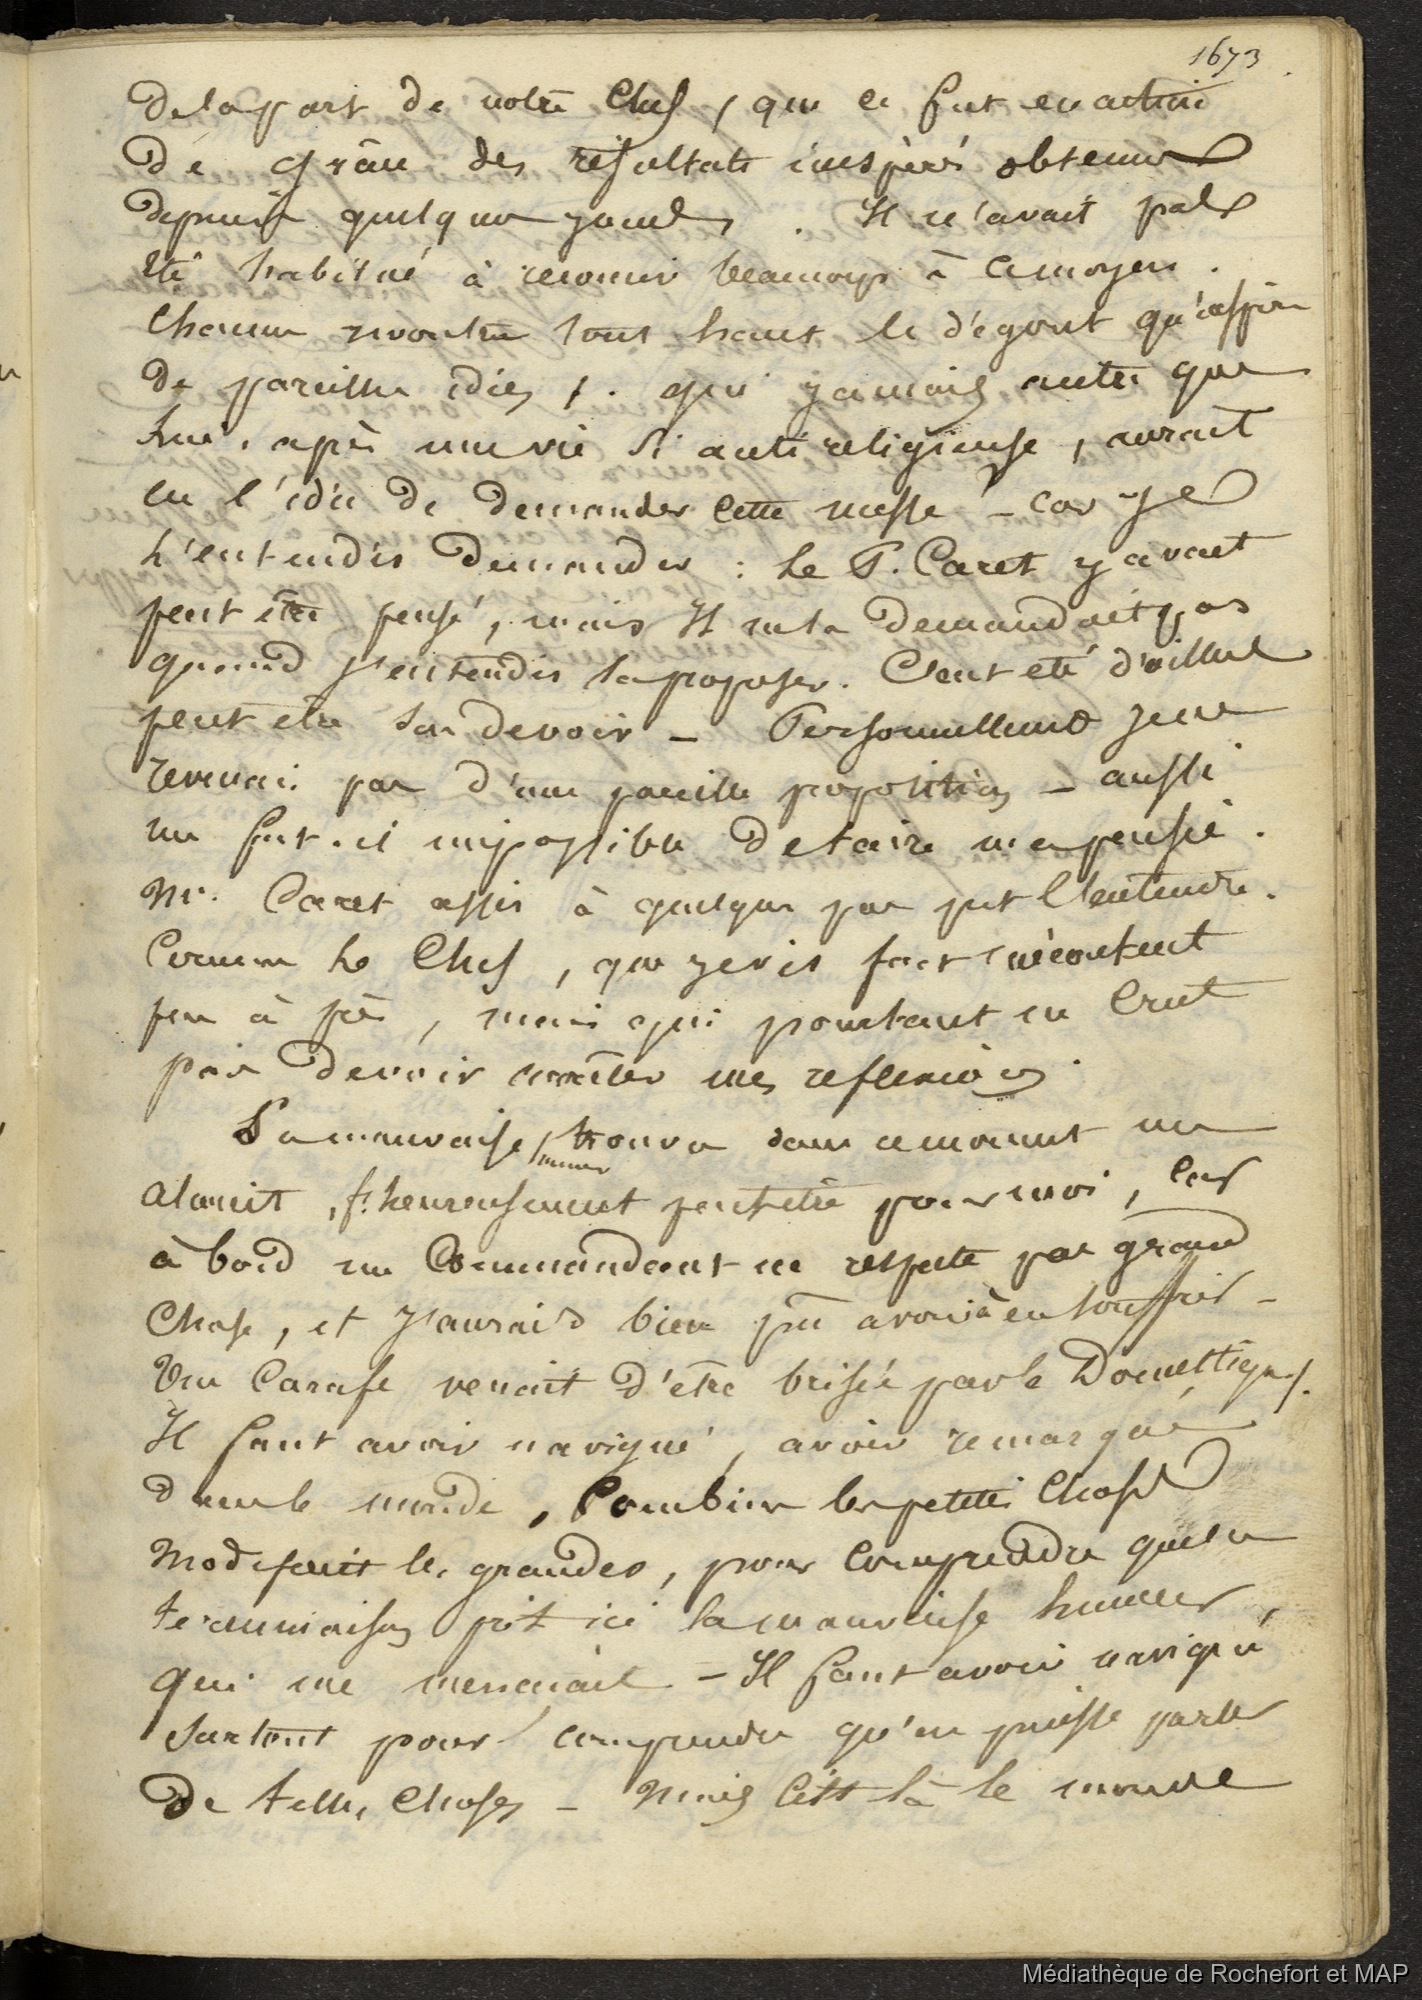 1673
de la part de notre Chef, que ce fut en action
de grâce des résultats inespérés obtenus
depuis quelques jours. Il n'avait pas
été habitué à recourir beaucoup à ce moyen.
Chacun montra tout haut le dégout qu'inspire
de pareilles idées, . qui jamais autre que
lui, après une vie si anti religieuse, aurait
eu l'idée de demander cette messe – car je
l'entendis demander : le P. Caret y avait
peut être pensé, mais Il ne la demandait pas
quand j'entendis la proposer. C'eut été d'ailleurs
peut etre son devoir – Personnellement je ne
revenais pas d'une pareille proposition – aussi
me fut-il impossible de taire ma pensée.
Mr. Caret assis à quelques pas put l'entendre.
Comme le Chef, que je vis fort mécontent
peu à près, mais qui pourtant ne crut
pas devoir arrêter mes reflexions.
Sa mauvaise humeur trouva dans ce moment un
aliment, heureusement peut etre pour moi, car
à bord un Commandant ne respecte pas grand
Chose, et j'aurais bien pu avoir à en souffrir –
Une Carafe venait d'être brisée par le Domestique.
Il faut avoir navigué, avoir remarqué
dans le monde, Combien les petites Choses
modifient les grandes, pour comprendre quelle
terminaison prit ici la mauvaise humeur,
qui me menaçait – Il faut avoir navigué
surtout pour comprendre qu'on puisse parler
de telles Choses – Mais C'est là le monde
Médiathèque de Rochefort et MAP